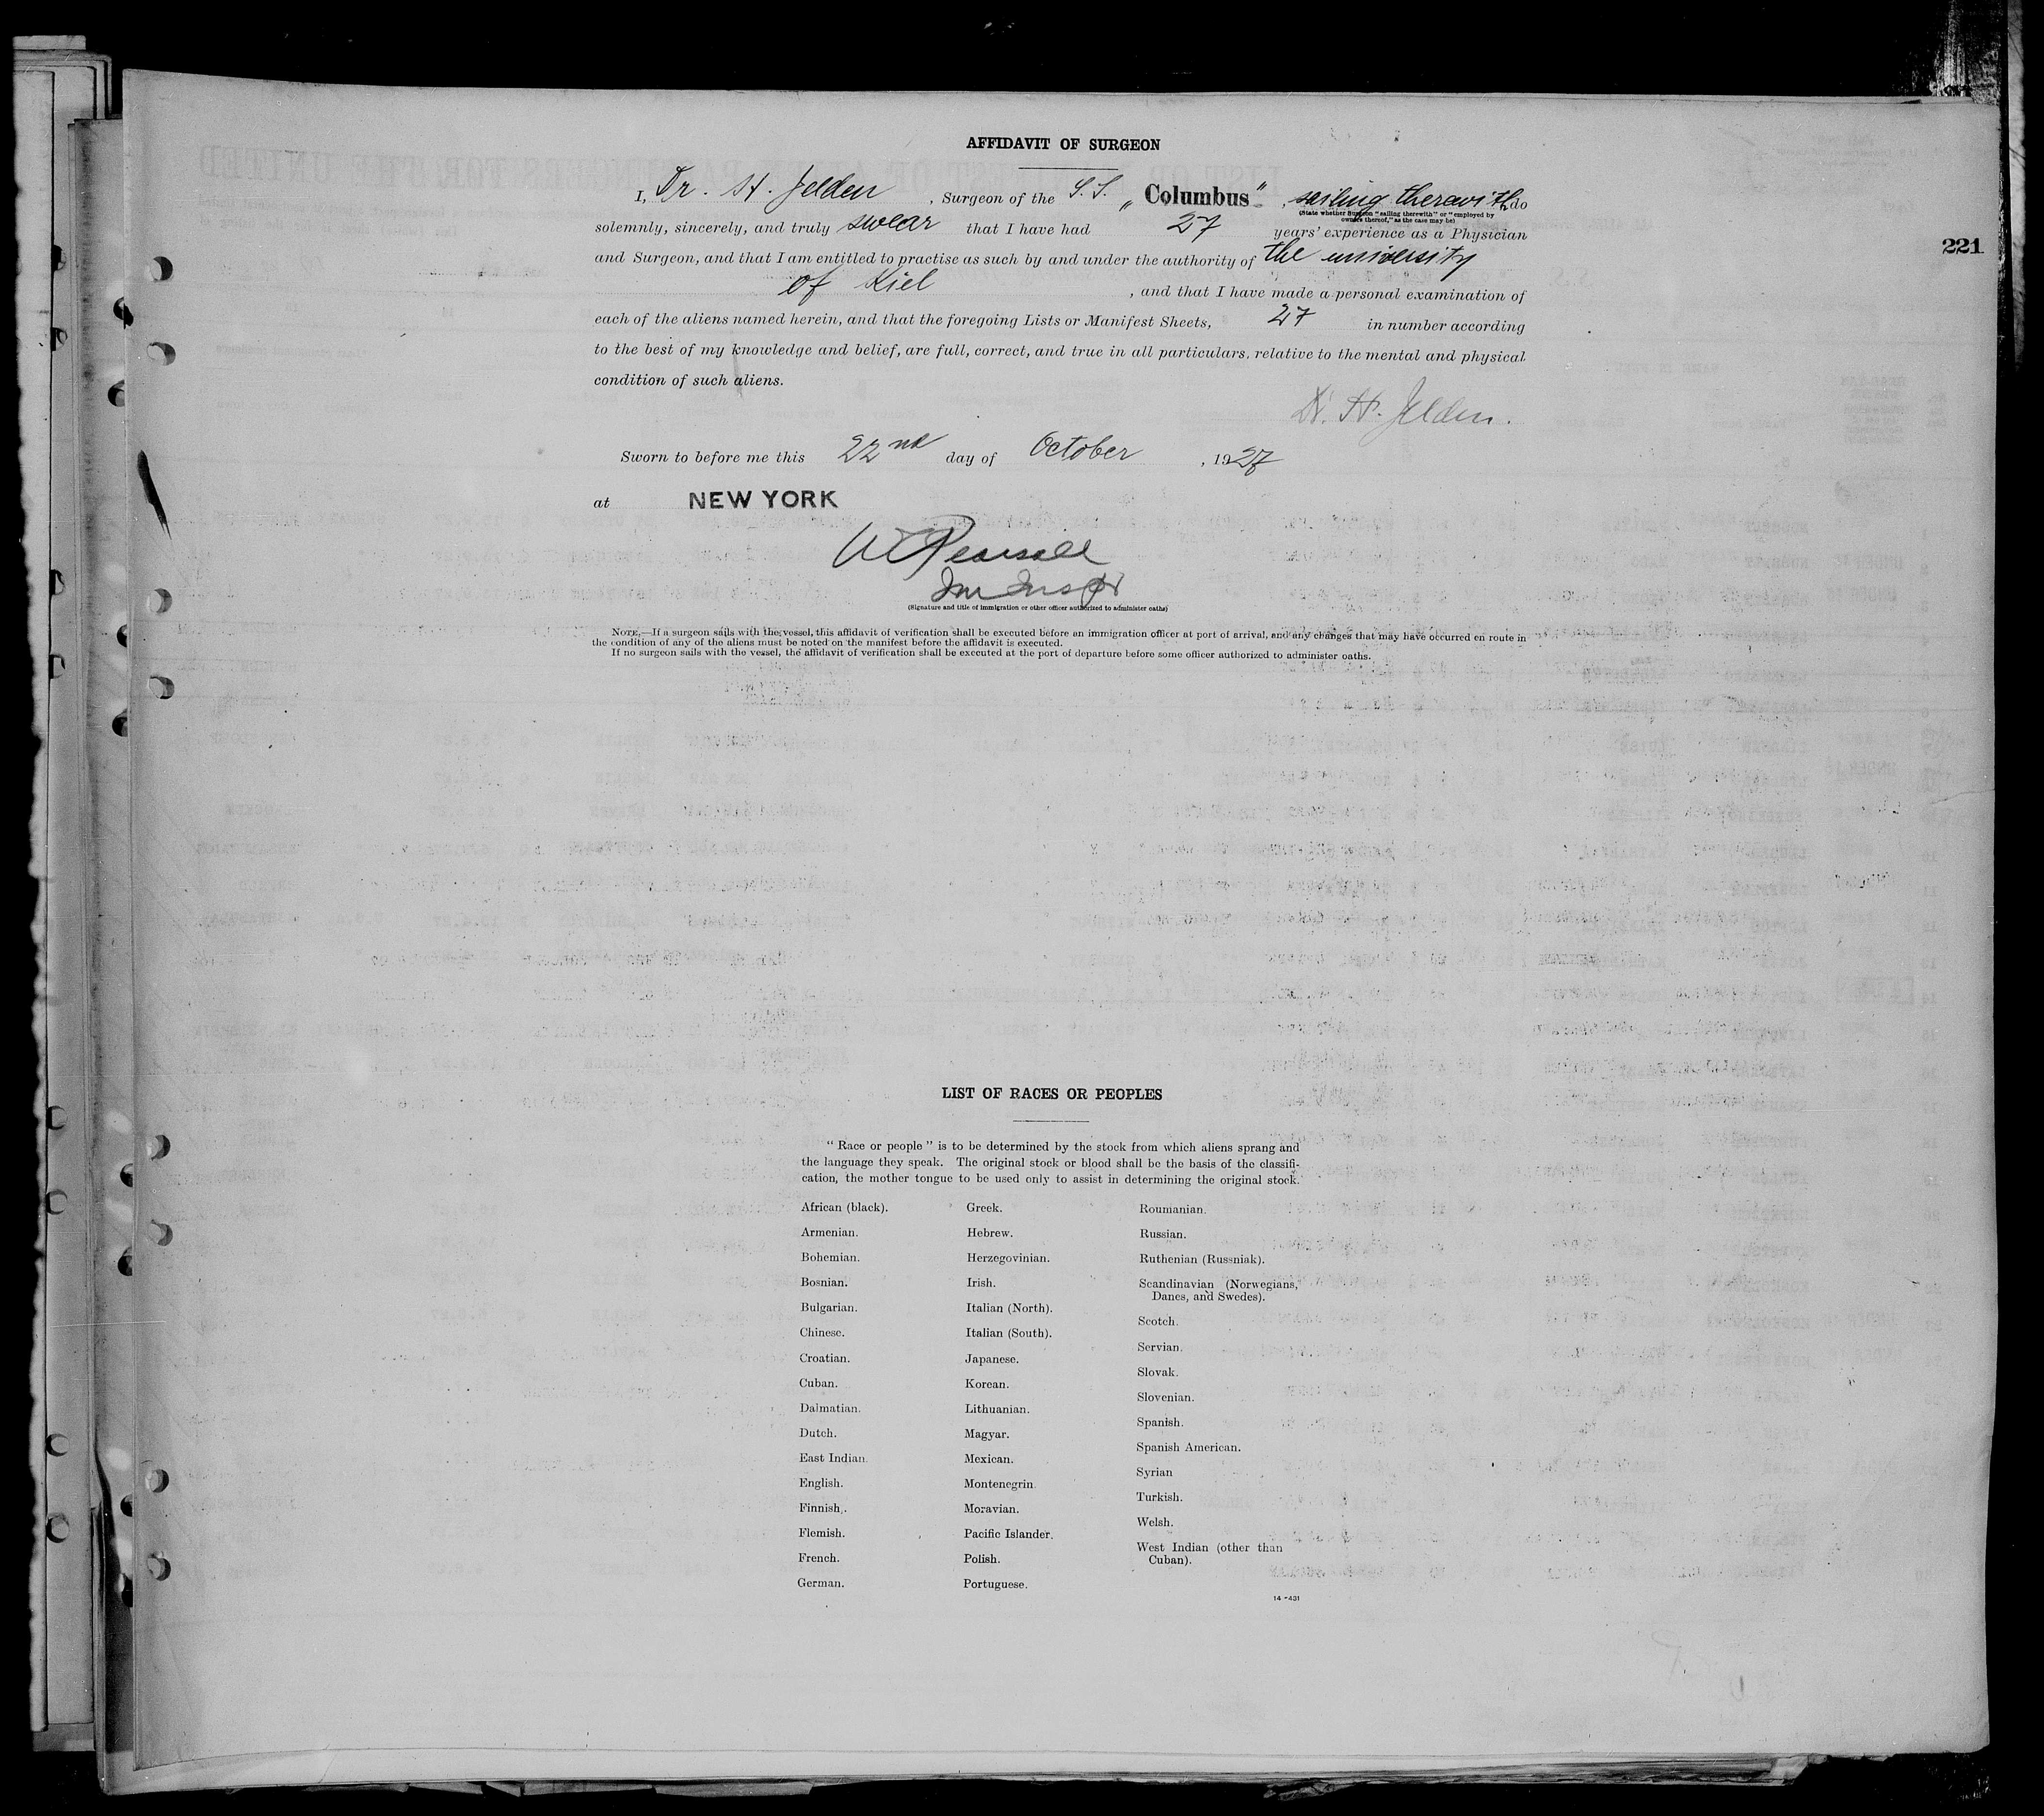 AFFIDAVIT OF SURGEON
I, Dr. H. Jelden, Surgeon of the S.S. „Columbus", sailing therewith do
(State whether Surgeon "sailing therewith" or "employed by
owners thereof," as the case may be)
solemnly, sincerely, and truly swear that I have had 27 years' experience as a Physician
and Surgeon, and that I am entitled to practise as such by and under the authority of the university
221
of Kiel, and that I have made a personal examination of
each of the aliens named herein, and that the foregoing Lists or Manifest Sheets, 27 in number according
to the best of my knowledge and belief, are full, correct, and true in all particulars, relative to the mental and physical
condition of such aliens.
Dr. H. Jelden.
Sworn to before me this 22nd day of October, 1927
at NEW YORK
Pearsall
(Signature and title of immigration or other officer authorized to administer oaths)
NOTE.—If a surgeon sails with the vessel, this affidavit of verification shall be executed before an immigration officer at port of arrival, and any changes that may have occurred en route in
the condition of any of the aliens must be noted on the manifest before the affidavit is executed.
If no surgeon sails with the vessel, the affidavit of verification shall be executed at the port of departure before some officer authorized to administer oaths.
LIST OF RACES OR PEOPLES
" Race or people " is to be determined by the stock from which aliens sprang and
the language they speak. The original stock or blood shall be the basis of the classifi-
cation, the mother tongue to be used only to assist in determining the original stock.
African (black).
Armenian.
Bohemian.
Bosnian.
Bulgarian.
Chinese.
Croatian.
Cuban.
Dalmatian.
Dutch.
East Indian.
English.
Finnish.
Flemish.
French.
German.
Greek.
Hebrew.
Herzegovinian.
Irish.
Italian (North).
Italian (South).
Japanese.
Korean.
Lithuanian.
Magyar.
Mexican.
Montenegrin.
Moravian.
Pacific Islander.
Polish.
Portuguese.
Roumanian.
Russian.
Ruthenian (Russniak).
Scandinavian (Norwegians,
Danes, and Swedes).
Scotch.
Servian.
Slovak.
Slovenian.
Spanish.
Spanish American.
Syrian
Turkish.
Welsh.
West Indian (other than
Cuban).
14—431